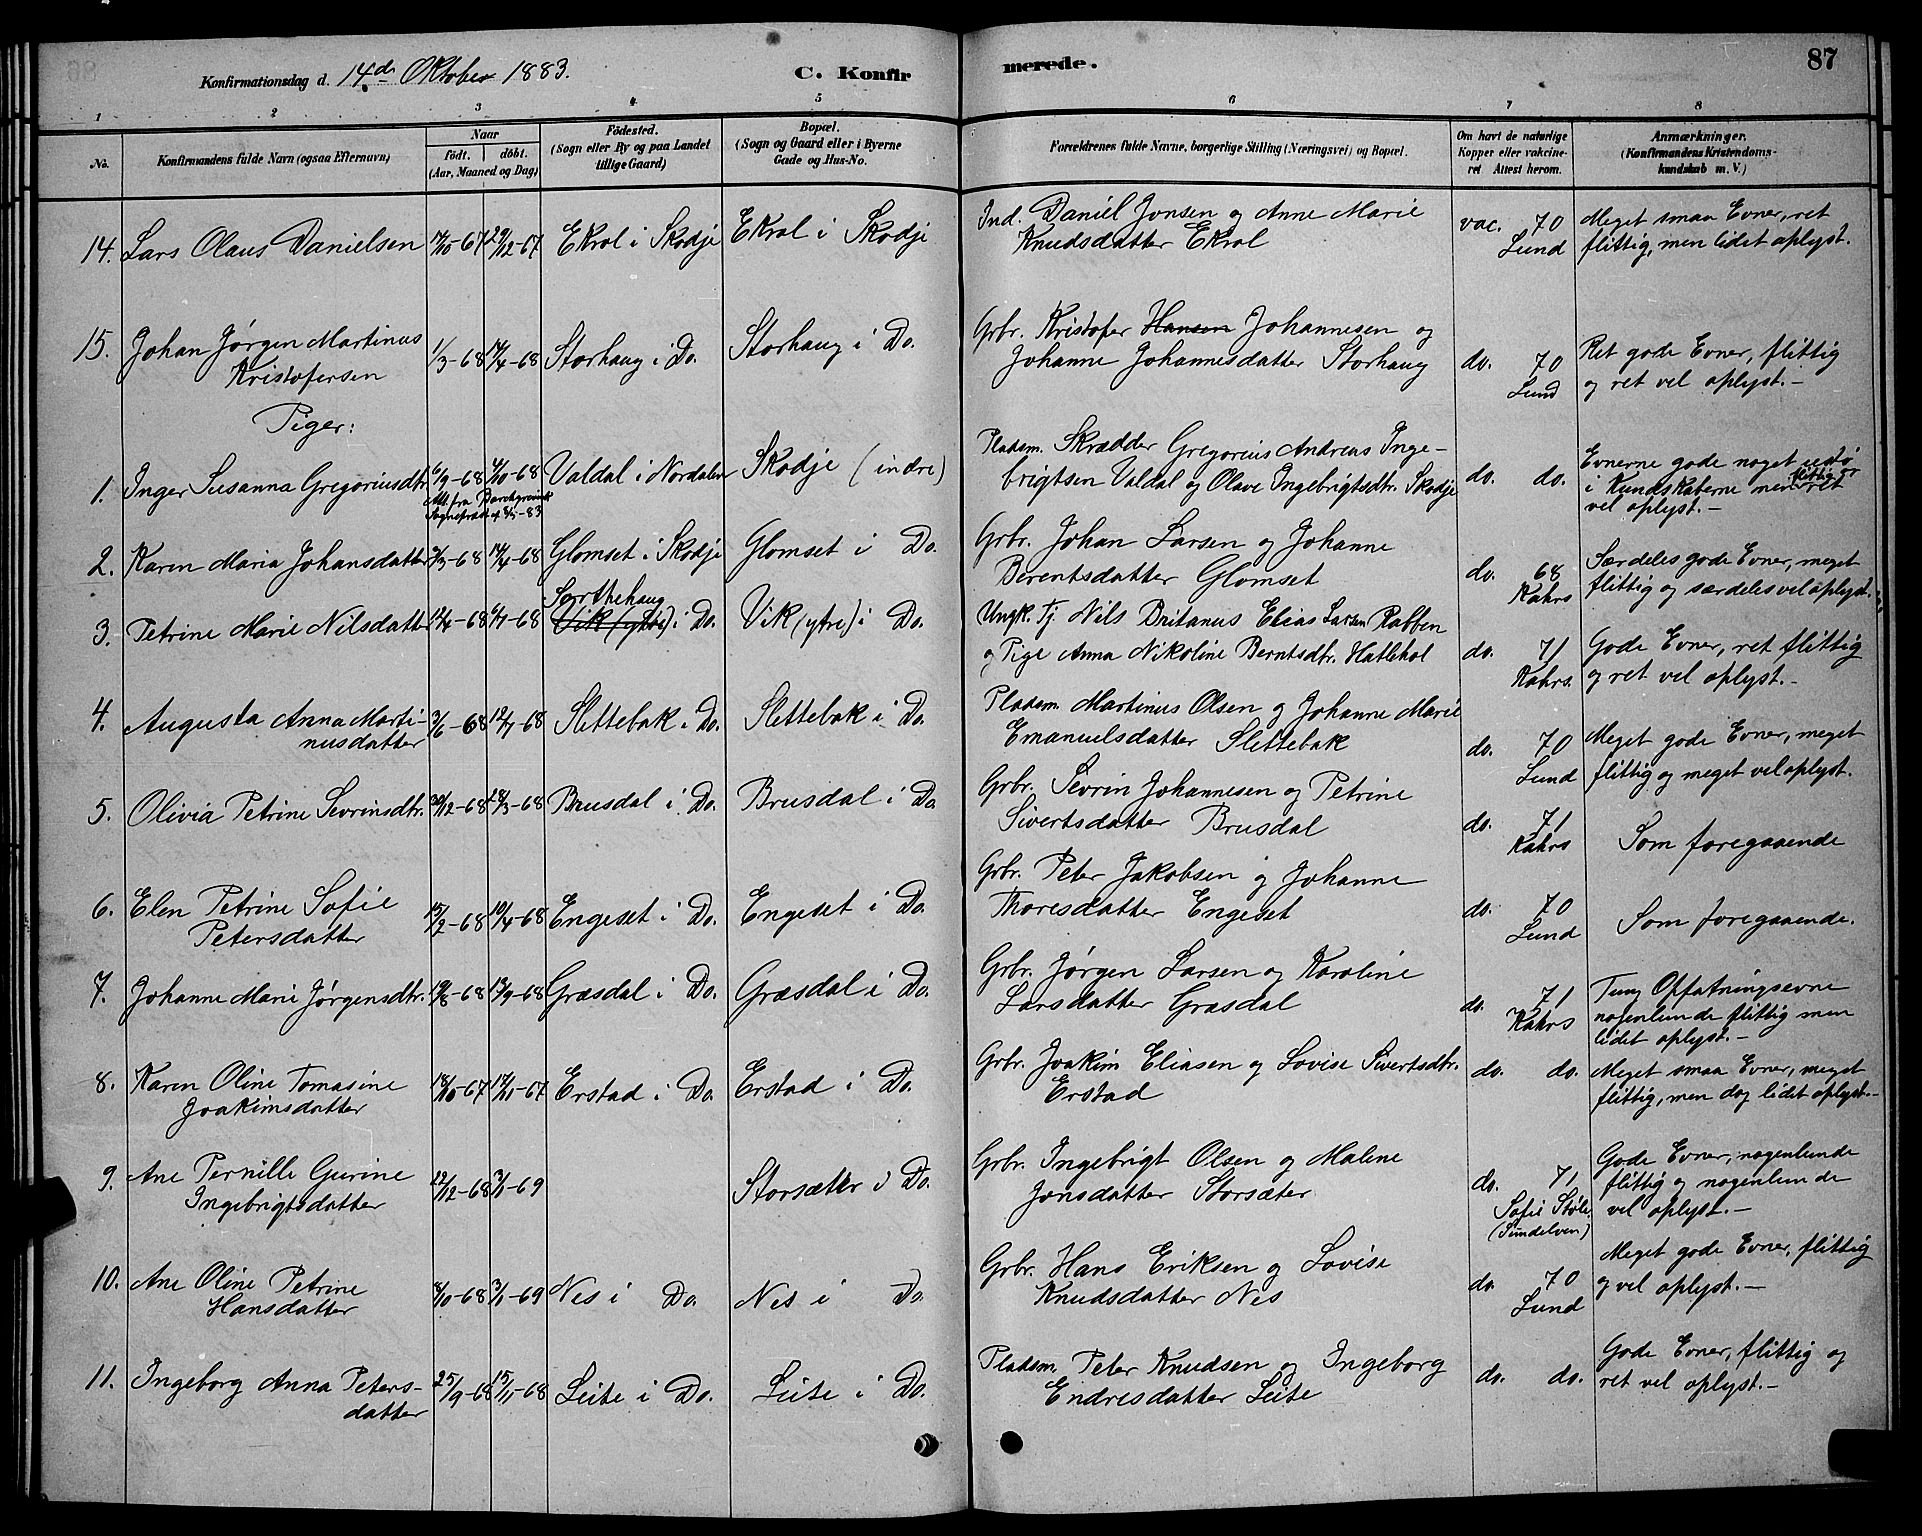 87
Konfirmationsdag d. 14de Oktober 1883.
C. Konfirmerede.
1 2 3 4 5 6 7 8
No.
Konfirmandens fulde Navn (ogsaa Efternavn)
Naar
födt. döbt.
(Aar, Maaned og Dag)
Födested.
(Sogn eller By og paa Landet
tillige Gaard)
Bopæl.
(Sogn og Gaard eller i Byerne
Gade og Hus-No.
Forældrenes fulde Navne, borgerlige Stilling (Næringsvei) og Bopæl.
Om havt de naturlige
Kopper eller vakcine-
ret Attest herom.
Anmærkninger.
(Konfirmandens Kristendoms-
kundskab m. V.)
14. Lars Olaus Danielsen 17/10-67 29/12-67 Ekrol i Skodje Ekrol i Skodje
Ind. Daniel Jonsen og Anne Marie
Knudsdatter Ekrol
vac. 70
Lund
Meget smaa Evner, ret
flittig, men lidet oplyst.
15. Johan Jørgen Martinus
Kristofersen
1/3-68 14/4-68 Storhaug i Do. Storhaug i Do.
Grbr. Kristofer Hansen Johannesen og
Johanne Johannesdatter Storhaug
do. 70
Lund
Ret gode Evner, flittig
og ret vel oplyst.-
Piger:
1. Inger Susanna Gregoriusdtr. 6/9-68 4/10-68 Valdal i Nordalen Skodje (indre)
Pladsm. Skrædder Gregorius Andreas Inge-
brigtsen Valdal og Olave Ingebrigtsdtr. Skodje
do. do.
Evnerne gode noget
i Kundskaberne men flittig
ret
vel oplyst.-
2. Karen Maria Johansdatter 2/3-68 14/4-68 Glomset i Skodje Glomset i Do.
Grbr. Johan Larsen og Johanne
Berentsdatter Glomset
do. 68
Kahrs
Særdeles gode Evner, meget
flittig og særdeles vel oplyst.
3. Petrine Marie Nilsdatter 12/4-68 -68 Vik (ytre) i Do. Vik (ytre) i Do.
Ungk. Tj. Nils Britanus Elias Larsen Rabben
og Pige Anna Nikoline Berntsdtr. Hatlehol
do. 71
Kahrs.
Gode Evner, ret flittig
og ret vel oplyst.-
4. Augusta Anna Marti-
nusdatter
3/6-68 12/7-68 Slettebak i Do. Slettebak i Do.
Pladsm. Martinus Olsen og Johanne Marie
Emanuelsdatter Slettebak
do. 70
Lund
Meget gode Evner, meget
flittig og meget vel oplyst.
5. Olivia Petrine Sevrinsdtr. /12-68 18/3-68 Brusdal i Do. Brusdal i Do
Grbr. Sevrin Johannesen og Petrine
Sivertsdatter Brusdal
do. 71
Kahrs
Som foregaaende
6. Elen Petrine Sofie
Petersdatter
15/2-68 10/4-68 Engeset i Do. Engeset i Do.
Grbr. Peter Jakobsen og Johanne
Thoresdatter Engeset
do. 70
Lund
Som foregaaende.
7. Johanne Marie Jørgensdtr. 19/8-68 13/9-68 Græsdal i Do. Græsdal i Do.
Grbr. Jørgen Larsen og Karoline
Larsdatter Græsdal
do. 71
Kahrs
Tung Opfatningsevne
nogenlunde flittig men
lidet oplyst.-
8. Karen Oline Tomasine
Joakimsdatter
18/10-67 17/11-67 Erstad i Do. Erstad i Do.
Grbr. Joakim Eliasen og Lovise Sivertsdtr.
Erstad
do. do.
Meget smaa Evner, meget
flittig, men dog lidet oplyst.-
9. Ane Pernille Gurine
Ingebrigtsdatter
22/12-68 3/1-69 Storsæter i Do.
Grbr. Ingebrigt Olsen og Malene
Jonsdatter Storsæter
do. 71
Sofie Støle.
(Sundelven)
Gode Evner, nogenlunde
flittig og nogenlunde
vel oplyst.-
10. Ane Oline Petrine
Hansdatter
8/10-68 3/1-69 Nes i Do. Nes i Do
Grbr. Hans Eriksen og Lovise
Knudsdatter Nes
do. 70
Lund
Meget gode Evner, flittig
og vel oplyst.-
11. Ingeborg Anna Peters-
datter
25/9-68 15/11-68 Leite i Do. Leite i Do.
Pladsm. Peter Knudsen og Ingeborg
Endresdatter Leite
do. do.
Gode Evner, flittig og
ret vel oplyst.-